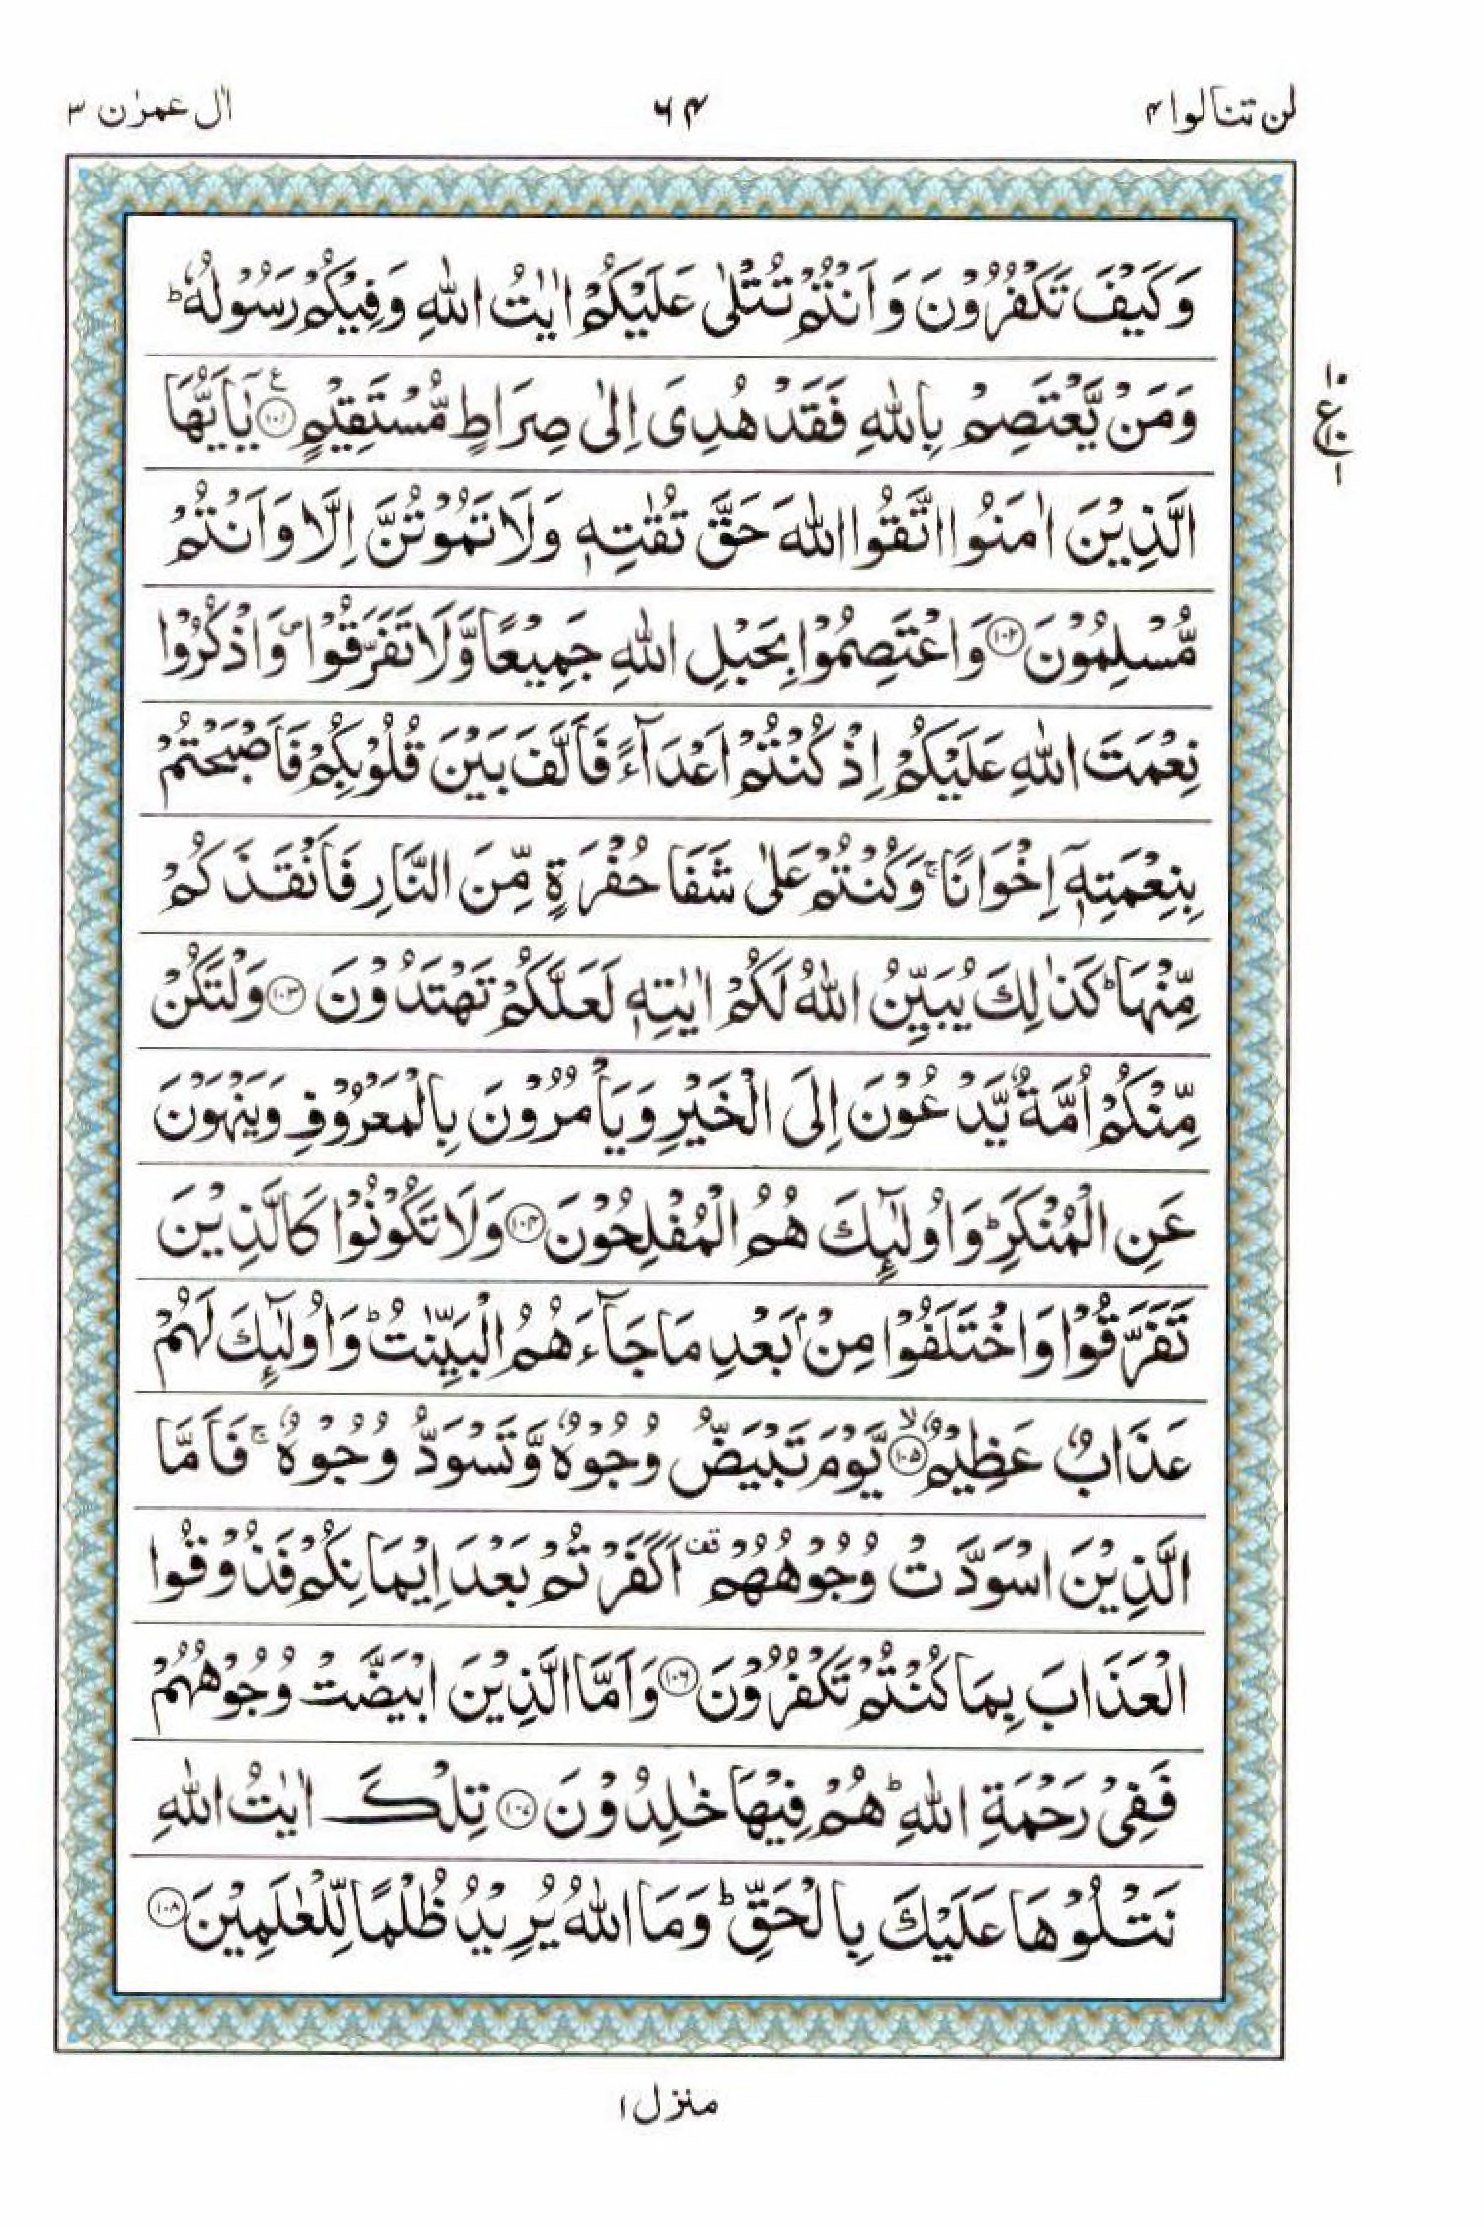 لن تنالوا ۴ ۶۴ اٰل عمرٰن ۳
وَكَيْفَ تَكْفُرُوْنَ وَاَنْتُمْ تُتْلٰى عَلَيْكُمْ اٰيٰتُ اللّٰهِ وَفِيْكُمْ رَسُوْلُهٗ ؕ
وَمَنْ يَّعْتَصِمْ بِاللّٰهِ فَقَدْ هُدِىَ اِلٰى صِرَاطٍ مُّسْتَقِيْمٍ ۧ ﴿۱۰۱﴾ يٰۤاَيُّهَا
۱۰
ع
۱۰
۱
الَّذِيْنَ اٰمَنُوا اتَّقُوا اللّٰهَ حَقَّ تُقٰتِهٖ وَلَا تَمُوْتُنَّ اِلَّا وَاَنْتُمْ
مُّسْلِمُوْنَ ﴿۱۰۲﴾ وَاعْتَصِمُوْا بِحَبْلِ اللّٰهِ جَمِيْعًا وَّلَا تَفَرَّقُوْا ۪ وَاذْكُرُوْا
نِعْمَتَ اللّٰهِ عَلَيْكُمْ اِذْ كُنْتُمْ اَعْدَآءً فَاَلَّفَ بَيْنَ قُلُوْبِكُمْ فَاَصْبَحْتُمْ
بِنِعْمَتِهٖۤ اِخْوَانًا ۚ وَكُنْتُمْ عَلٰى شَفَا حُفْرَةٍ مِّنَ النَّارِ فَاَنْقَذَكُمْ
مِّنْهَا ؕ كَذٰلِكَ يُبَيِّنُ اللّٰهُ لَكُمْ اٰيٰتِهٖ لَعَلَّكُمْ تَهْتَدُوْنَ ﴿۱۰۳﴾ وَلْتَكُنْ
مِّنْكُمْ اُمَّةٌ يَّدْعُوْنَ اِلَى الْخَيْرِ وَيَاْمُرُوْنَ بِالْمَعْرُوْفِ وَيَنْهَوْنَ
عَنِ الْمُنْكَرِ ؕ وَاُولٰٓئِكَ هُمُ الْمُفْلِحُوْنَ ﴿۱۰۴﴾ وَلَا تَكُوْنُوْا كَالَّذِيْنَ
تَفَرَّقُوْا وَاخْتَلَفُوْا مِنْۢ بَعْدِ مَا جَآءَهُمُ الْبَيِّنٰتُ ؕ وَاُولٰٓئِكَ لَهُمْ
عَذَابٌ عَظِيْمٌ ۙ ﴿۱۰۵﴾ يَّوْمَ تَبْيَضُّ وُجُوْهٌ وَّتَسْوَدُّ وُجُوْهٌ ۚ فَاَمَّا
الَّذِيْنَ اسْوَدَّتْ وُجُوْهُهُمْ قف اَكَفَرْتُمْ بَعْدَ اِيْمَانِكُمْ فَذُوْقُوا
الْعَذَابَ بِمَا كُنْتُمْ تَكْفُرُوْنَ ﴿۱۰۶﴾ وَاَمَّا الَّذِيْنَ ابْيَضَّتْ وُجُوْهُهُمْ
فَفِيْ رَحْمَةِ اللّٰهِ ؕ هُمْ فِيْهَا خٰلِدُوْنَ ﴿۱۰۷﴾ تِلْكَ اٰيٰتُ اللّٰهِ
نَتْلُوْهَا عَلَيْكَ بِالْحَقِّ ؕ وَمَا اللّٰهُ يُرِيْدُ ظُلْمًا لِّلْعٰلَمِيْنَ ﴿۱۰۸﴾
منزل ۱